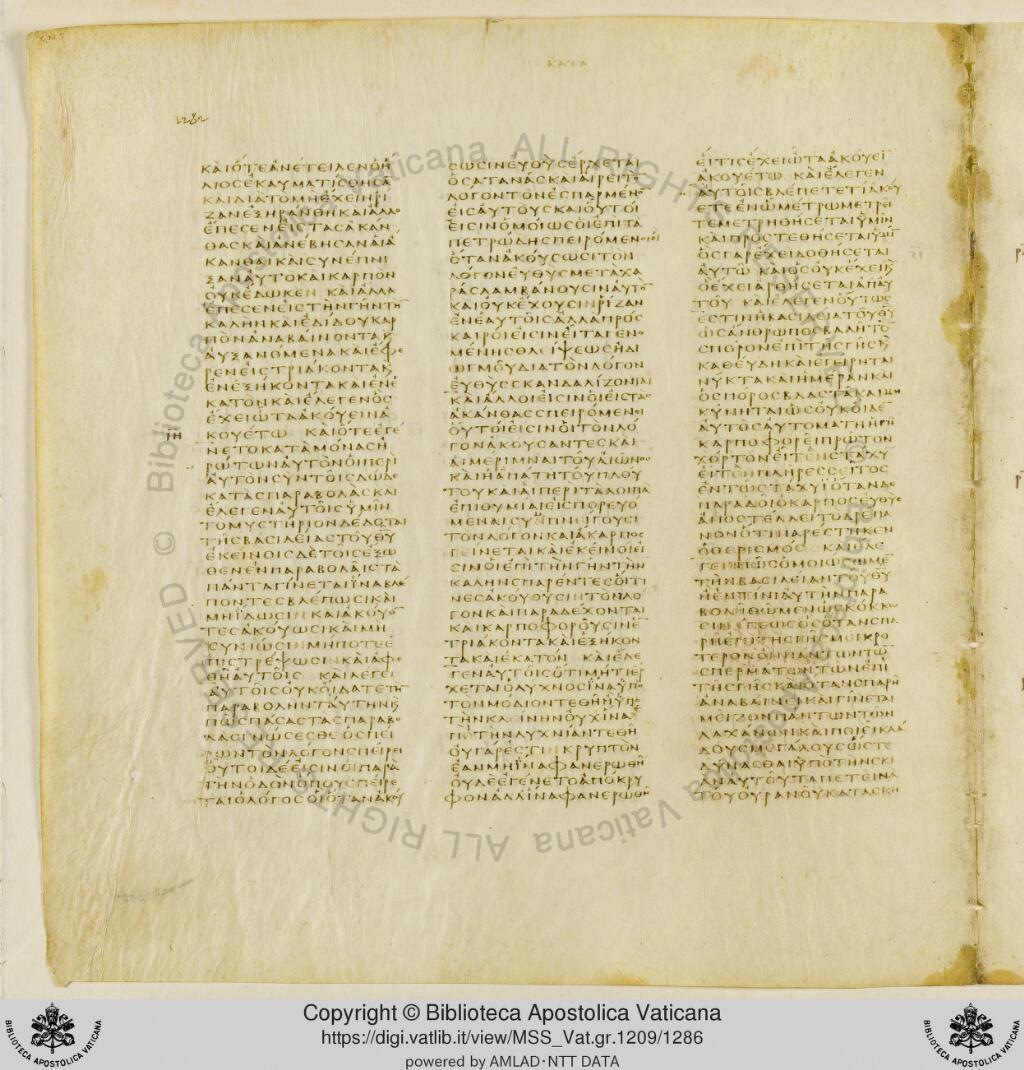 ΚΑΤΑ
ΚΑΙΟΤΕΑΝΕΤΕΙΛΕΝΟΗ
ΛΙΟΣΕΚΑΥΜΑΤΙΣΘΗΣΑ
ΚΑΙΔΙΑΤΟΜΗΕΧΕΙΝΡΙ
ΖΑΝΕΞΗΡΑΝΘΗΚΑΙΑΛΛΟ
ΕΠΕΣΕΝΕΙΣΤΑΣΑΚΑΝ
ΘΑΣΚΑΙΑΝΕΒΗΣΑΝΑΙΑ
ΚΑΝΘΑΙΚΑΙΣΥΝΕΠΝΙ
ΞΑΝΑΥΤΟΚΑΙΚΑΡΠΟΝ
ΟΥΚΕΔΩΚΕΝ ΚΑΙΑΛΛΑ
ΕΠΕΣΕΝΕΙΣΤΗΝΓΗΝΤΗ
ΚΑΛΗΝΚΑΙΕΔΙΔΟΥΚΑΡ
ΠΟΝΑΝΑΒΑΙΝΟΝΤΑΚ
ΑΥΞΑΝΟΜΕΝΑΚΑΙΕΦΕ
ΡΕΝΕΙΣΤΡΙΑΚΟΝΤΑΚ
ΕΝΕΞΗΚΟΝΤΑΚΑΙΕΝΕ
ΚΑΤΟΝΚΑΙΕΛΕΓΕΝΟΣ
ΕΧΕΙΩΤΑΑΚΟΥΕΙΝΑ
ΚΟΥΕΤΩ ΚΑΙΟΤΕΕΓΕ
ΝΕΤΟΚΑΤΑΜΟΝΑΣΗ
ΡΩΤΩΝΑΥΤΟΝΟΙΠΕΡΙ
ΑΥΤΟΝΣΥΝΤΟΙΣΔΩΔΕ
ΚΑΤΑΣΠΑΡΑΒΟΛΑΣΚΑΙ
ΕΛΕΓΕΝΑΥΤΟΙΣΥΜΙΝ
ΤΟΜΥΣΤΗΡΙΟΝΔΕΔΟΤΑΙ
ΤΗΣΒΑΣΙΛΕΙΑΣΤΟΥΘΥ
ΕΚΕΙΝΟΙΣΔΕΤΟΙΣΕΞΩ
ΘΕΝΕΝΠΑΡΑΒΟΛΑΙΣΤΑ
ΠΑΝΤΑΓΙΝΕΤΑΙΙΝΑΒΛΕ
ΠΟΝΤΕΣΒΛΕΠΩΣΙΚΑΙ
ΜΗΙΔΩΣΙΝ ΚΑΙΑΚΟΥΟ
ΤΕΣΑΚΟΥΩΣΙΚΑΙΜΗ
ΣΥΝΙΩΣΙΝΜΗΠΟΤΕΕ
ΠΙΣΤΡΕΨΩΣΙΝΚΑΙΑΦΕ
ΘΗΑΥΤΟΙΣ ΚΑΙΛΕΓΕΙ
ΑΥΤΟΙΣΟΥΚΟΙΔΑΤΕΤΗ
ΠΑΡΑΒΟΛΗΝΤΑΥΤΗΝΚ
ΠΩΣΠΑΣΑΣΤΑΣΠΑΡΑΒΟ
ΛΑΣΓΝΩΣΕΣΘΕΟΣΠΕΙ
ΡΩΝΤΟΝΛΟΓΟΝΣΠΕΙΡΕΙ
ΟΥΤΟΙΔΕΕΙΣΙΝΟΙΠΑΡΑ
ΤΗΝΟΔΟΝΟΠΟΥΣΠΕΙΡΕ
ΤΑΙΟΛΟΓΟΣΟΙΟΤΑΝΑΚΟΥ
ΣΩΣΙΝΕΥΘΥΣΕΡΧΕΤΑΙ
ΟΣΑΤΑΝΑΣΚΑΙΑΙΡΕΙΤΟ
ΛΟΓΟΝΤΟΝΕΣΠΑΡΜΕΝΟ
ΕΙΣΑΥΤΟΥΣΚΑΙΟΥΤΟΙ
ΕΙΣΙΝΟΜΟΙΩΣΟΙΕΠΙΤΑ
ΠΕΤΡΩΔΗΣΠΕΙΡΟΜΕΝΟΙΟΙ
ΟΤΑΝΑΚΟΥΣΩΣΙΤΟΝ
ΛΟΓΟΝΕΥΘΥΣΜΕΤΑΧΑ
ΡΑΣΛΑΜΒΑΝΟΥΣΙΝΑΥΤΟ
ΚΑΙΟΥΚΕΧΟΥΣΙΝΡΙΖΑΝ
ΕΝΕΑΥΤΟΙΣΑΛΛΑΠΡΟΣ
ΚΑΙΡΟΙΕΙΣΙΝΕΙΤΑΓΕΝΟ
ΜΕΝΗΣΘΛΕΙΨΕΩΣΗΔΙ
ΩΓΜΟΥΔΙΑΤΟΝΛΟΓΟΝ
ΕΥΘΥΣΣΚΑΝΔΑΛΙΖΟΝΤΑΙ
ΚΑΙΑΛΛΟΙΕΙΣΙΝΟΙΕΙΣΤΑΣ
ΑΚΑΝΘΑΣΣΠΕΙΡΟΜΕΝΟΙ
ΟΥΤΟΙΕΙΣΙΝΟΙΤΟΝΛΟ
ΓΟΝΑΚΟΥΣΑΝΤΕΣΚΑΙ
ΑΙΜΕΡΙΜΝΑΙΤΟΥΑΙΩΝΟΣ
ΚΑΙΗΑΠΑΤΗΤΟΥΠΛΟΥ
ΤΟΥΚΑΙΑΙΠΕΡΙΤΑΛΟΙΠΑ
ΕΠΙΘΥΜΙΑΙΕΙΣΠΟΡΕΥΟ
ΜΕΝΑΙΣΥΜΠΝΙΓΟΥΣΙ
ΤΟΝΛΟΓΟΝΚΑΙΑΚΑΡΠΟΣ
ΓΕΙΝΕΤΑΙΚΑΙΕΚΕΙΝΟΙΕΙ
ΣΙΝΟΙΕΠΙΤΗΝΓΗΝΤΗΝ
ΚΑΛΗΝΣΠΑΡΕΝΤΕΣΟΙΤΙ
ΝΕΣΑΚΟΥΟΥΣΙΝΤΟΝΛΟ
ΓΟΝΚΑΙΠΑΡΑΔΕΧΟΝΤΑΙ
ΚΑΙΚΑΡΠΟΦΟΡΟΥΣΙΝΕ
ΤΡΙΑΚΟΝΤΑΚΑΙΕΞΗΚΟΝ
ΤΑΚΑΙΕΚΑΤΟΝ ΚΑΙΕΛΕ
ΓΕΝΑΥΤΟΙΣΟΤΙΜΗΤΙΕΡ
ΧΕΤΑΙΟΛΥΧΝΟΣΙΝΑΥΠΟ
ΤΟΝΜΟΔΙΟΝΤΕΘΗΗΥΠΟ
ΤΗΝΚΛΙΝΗΝΟΥΧΙΝΑ
ΥΠΟΤΗΝΛΥΧΝΙΑΝΤΕΘΗ
ΟΥΓΑΡΕΣΤΙΝΚΡΥΠΤΟΝ
ΕΑΝΜΗΙΝΑΦΑΝΕΡΩΘΗ
ΟΥΔΕΕΓΕΝΕΤΟΑΠΟΚΡΥ
ΦΟΝΑΛΛΙΝΑΦΑΝΕΡΩΘΗ
ΕΙΤΙΣΕΧΕΙΩΤΑΑΚΟΥΕΙ
ΑΚΟΥΕΤΩ ΚΑΙΕΛΕΓΕΝ
ΑΥΤΟΙΣΒΛΕΠΕΤΕΤΙΑΚΟΥ
ΕΤΕΕΝΩΜΕΤΡΩΜΕΤΡΕΙ
ΤΕΜΕΤΡΗΘΗΣΕΤΑΙΥΜΙΝ
ΚΑΙΠΡΟΣΤΕΘΗΣΕΤΑΙΥΜΙΝ
ΟΣΓΑΡΕΧΕΙΔΟΘΗΣΕΤΑΙ
ΑΥΤΩ ΚΑΙΟΣΟΥΚΕΧΕΙΚ
ΟΕΧΕΙΑΡΘΗΣΕΤΑΙΑΠΑΥ
ΤΟΥ ΚΑΙΕΛΕΓΕΝΟΥΤΩΣ
ΕΣΤΙΝΗΒΑΣΙΛΕΙΑΤΟΥΘΥ
ΩΣΑΝΘΡΩΠΟΣΒΑΛΗΤΟ
ΣΠΟΡΟΝΕΠΙΤΗΣΓΗΣΚ
ΚΑΘΕΥΔΗΚΑΙΕΓΕΙΡΗΤΑΙ
ΝΥΚΤΑΚΑΙΗΜΕΡΑΝΚΑΙ
ΟΣΠΟΡΟΣΒΛΑΣΤΑΚΑΙΜΗ
ΚΥΝΗΤΑΙΩΣΟΥΚΟΙΔΕ
ΑΥΤΟΣΑΥΤΟΜΑΤΗΗΓΗ
ΚΑΡΠΟΦΟΡΕΙΠΡΩΤΟΝ
ΧΟΡΤΟΝΕΙΤΕΝΣΤΑΧΥ
ΕΙΤΕΝΠΛΗΡΕΣΣΕΙΤΟΣ
ΕΝΤΩΣΤΑΧΥΙΟΤΑΝΔΕ
ΠΑΡΑΔΟΙΟΚΑΡΠΟΣΕΥΘΥΣ
ΑΠΟΣΤΕΛΛΕΙΤΟΔΡΕΠΑ
ΝΟΝΟΤΙΠΑΡΕΣΤΗΚΕΝ
ΟΘΕΡΙΣΜΟΣ ΚΑΙΕΛΕ
ΓΕΝΠΩΣΟΜΟΙΩΣΩΜΕ
ΤΗΝΒΑΣΙΛΕΙΑΝΤΟΥΘΥ
ΗΕΝΤΙΝΙΑΥΤΗΝΠΑΡΑ
ΒΟΛΗΘΩΜΕΝΩΣΚΟΚΚΩ
ΣΙΝΑΠΕΩΣΟΣΟΤΑΝΣΠΑ
ΡΗΕΠΙΤΗΣΓΗΣΜΕΙΚΡΟ
ΤΕΡΟΝΟΝΠΑΝΤΩΝΤΩ
ΣΠΕΡΜΑΤΩΝΤΩΝΕΠΙ
ΤΗΣΓΗΣΚΑΙΟΤΑΝΣΠΑΡΗ
ΑΝΑΒΑΙΝΕΙΚΑΙΓΙΝΕΤΑΙ
ΜΕΙΖΟΝΠΑΝΤΩΝΤΩΝ
ΛΑΧΑΝΩΝΚΑΙΠΟΙΕΙΚΛΑ
ΔΟΥΣΜΕΓΑΛΟΥΣΩΣΤΕ
ΔΥΝΑΣΘΑΙΥΠΟΤΗΝΣΚΙ
ΑΝΑΥΤΟΥΤΑΠΕΤΕΙΝΑ
ΤΟΥΟΥΡΑΝΟΥΚΑΤΑΣΚΗ
Biblioteca Apostolica Vaticana ALL RIGHTS RESERVED ©
BIBLIOTECA APOSTOLICA VATICANA
Copyright © Biblioteca Apostolica Vaticana
https://digi.vatlib.it/view/MSS_Vat.gr.1209/1286
powered by AMLAD·NTT DATA
BIBLIOTECA APOSTOLICA VATICANA